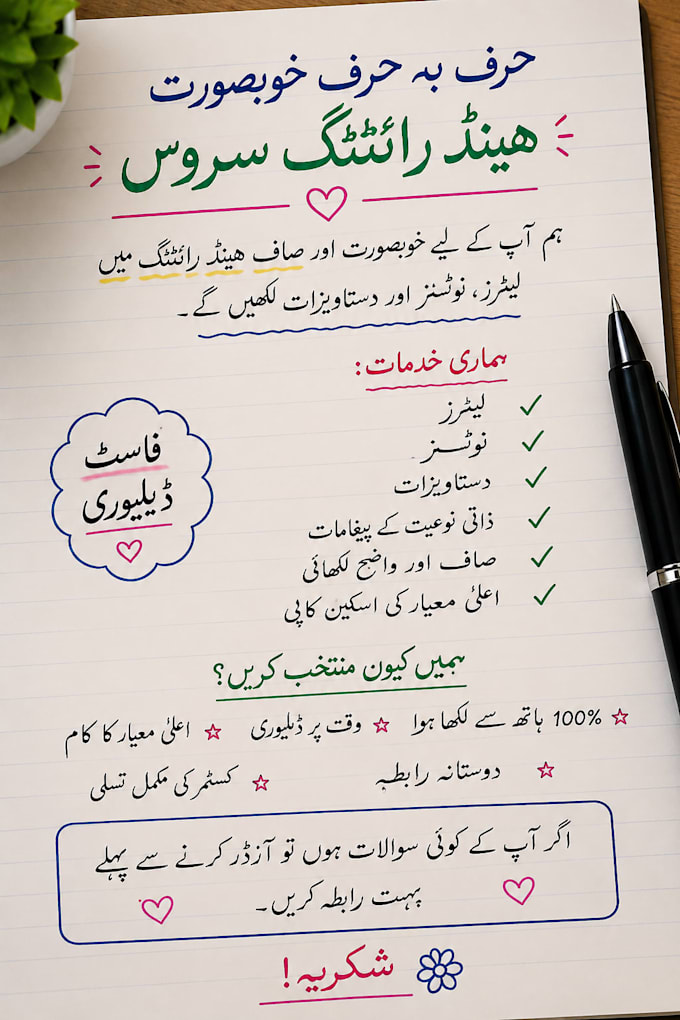 حرف بہ حرف خوبصورت
ھینڈ رائٹنگ سروس
ہم آپ کے لیے خوبصورت اور صاف ھینڈ رائٹنگ میں
لیٹرز، نوٹسنز اور دستاویزات لکھیں گے۔
ہماری خدمات:
لیٹرز
نوٹسز
دستاویزات
ذاتی نوعیت کے پیغامات
صاف اور واضح لکھائی
اعلیٰ معیار کی اسکین کاپی
فاسٹ
ڈیلیوری
ہمیں کیون منتخب کریں؟
100% ہاتھ سے لکھا ہوا
وقت پر ڈیلیوری
اعلیٰ معیار کا کام
دوستانہ رابطہ
کسٹمر کی مکمل تسلی
اگر آپ کے کوئی سوالات ہوں تو آرڈر کرنے سے پہلے
پہت رابطہ کریں۔
شکریہ!